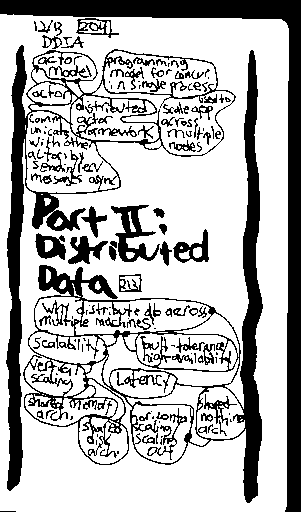 12/13 204
DDIA
actor
model
programming
model for concurr.
in single process
actor
distributed
actor
framework
used to
scale app
across
multiple
nodes
comm
unicate
with other
actors by
send/recv
messages async
Part II:
Distributed
Data 213
why distribute db across
multiple machines?
scalability
fault-tolerance/
high availability
vertical
scaling
Latency
shared memory
arch.
shared
disk
arch.
horizontal
scaling
scaling
out
shared-
nothing
arch